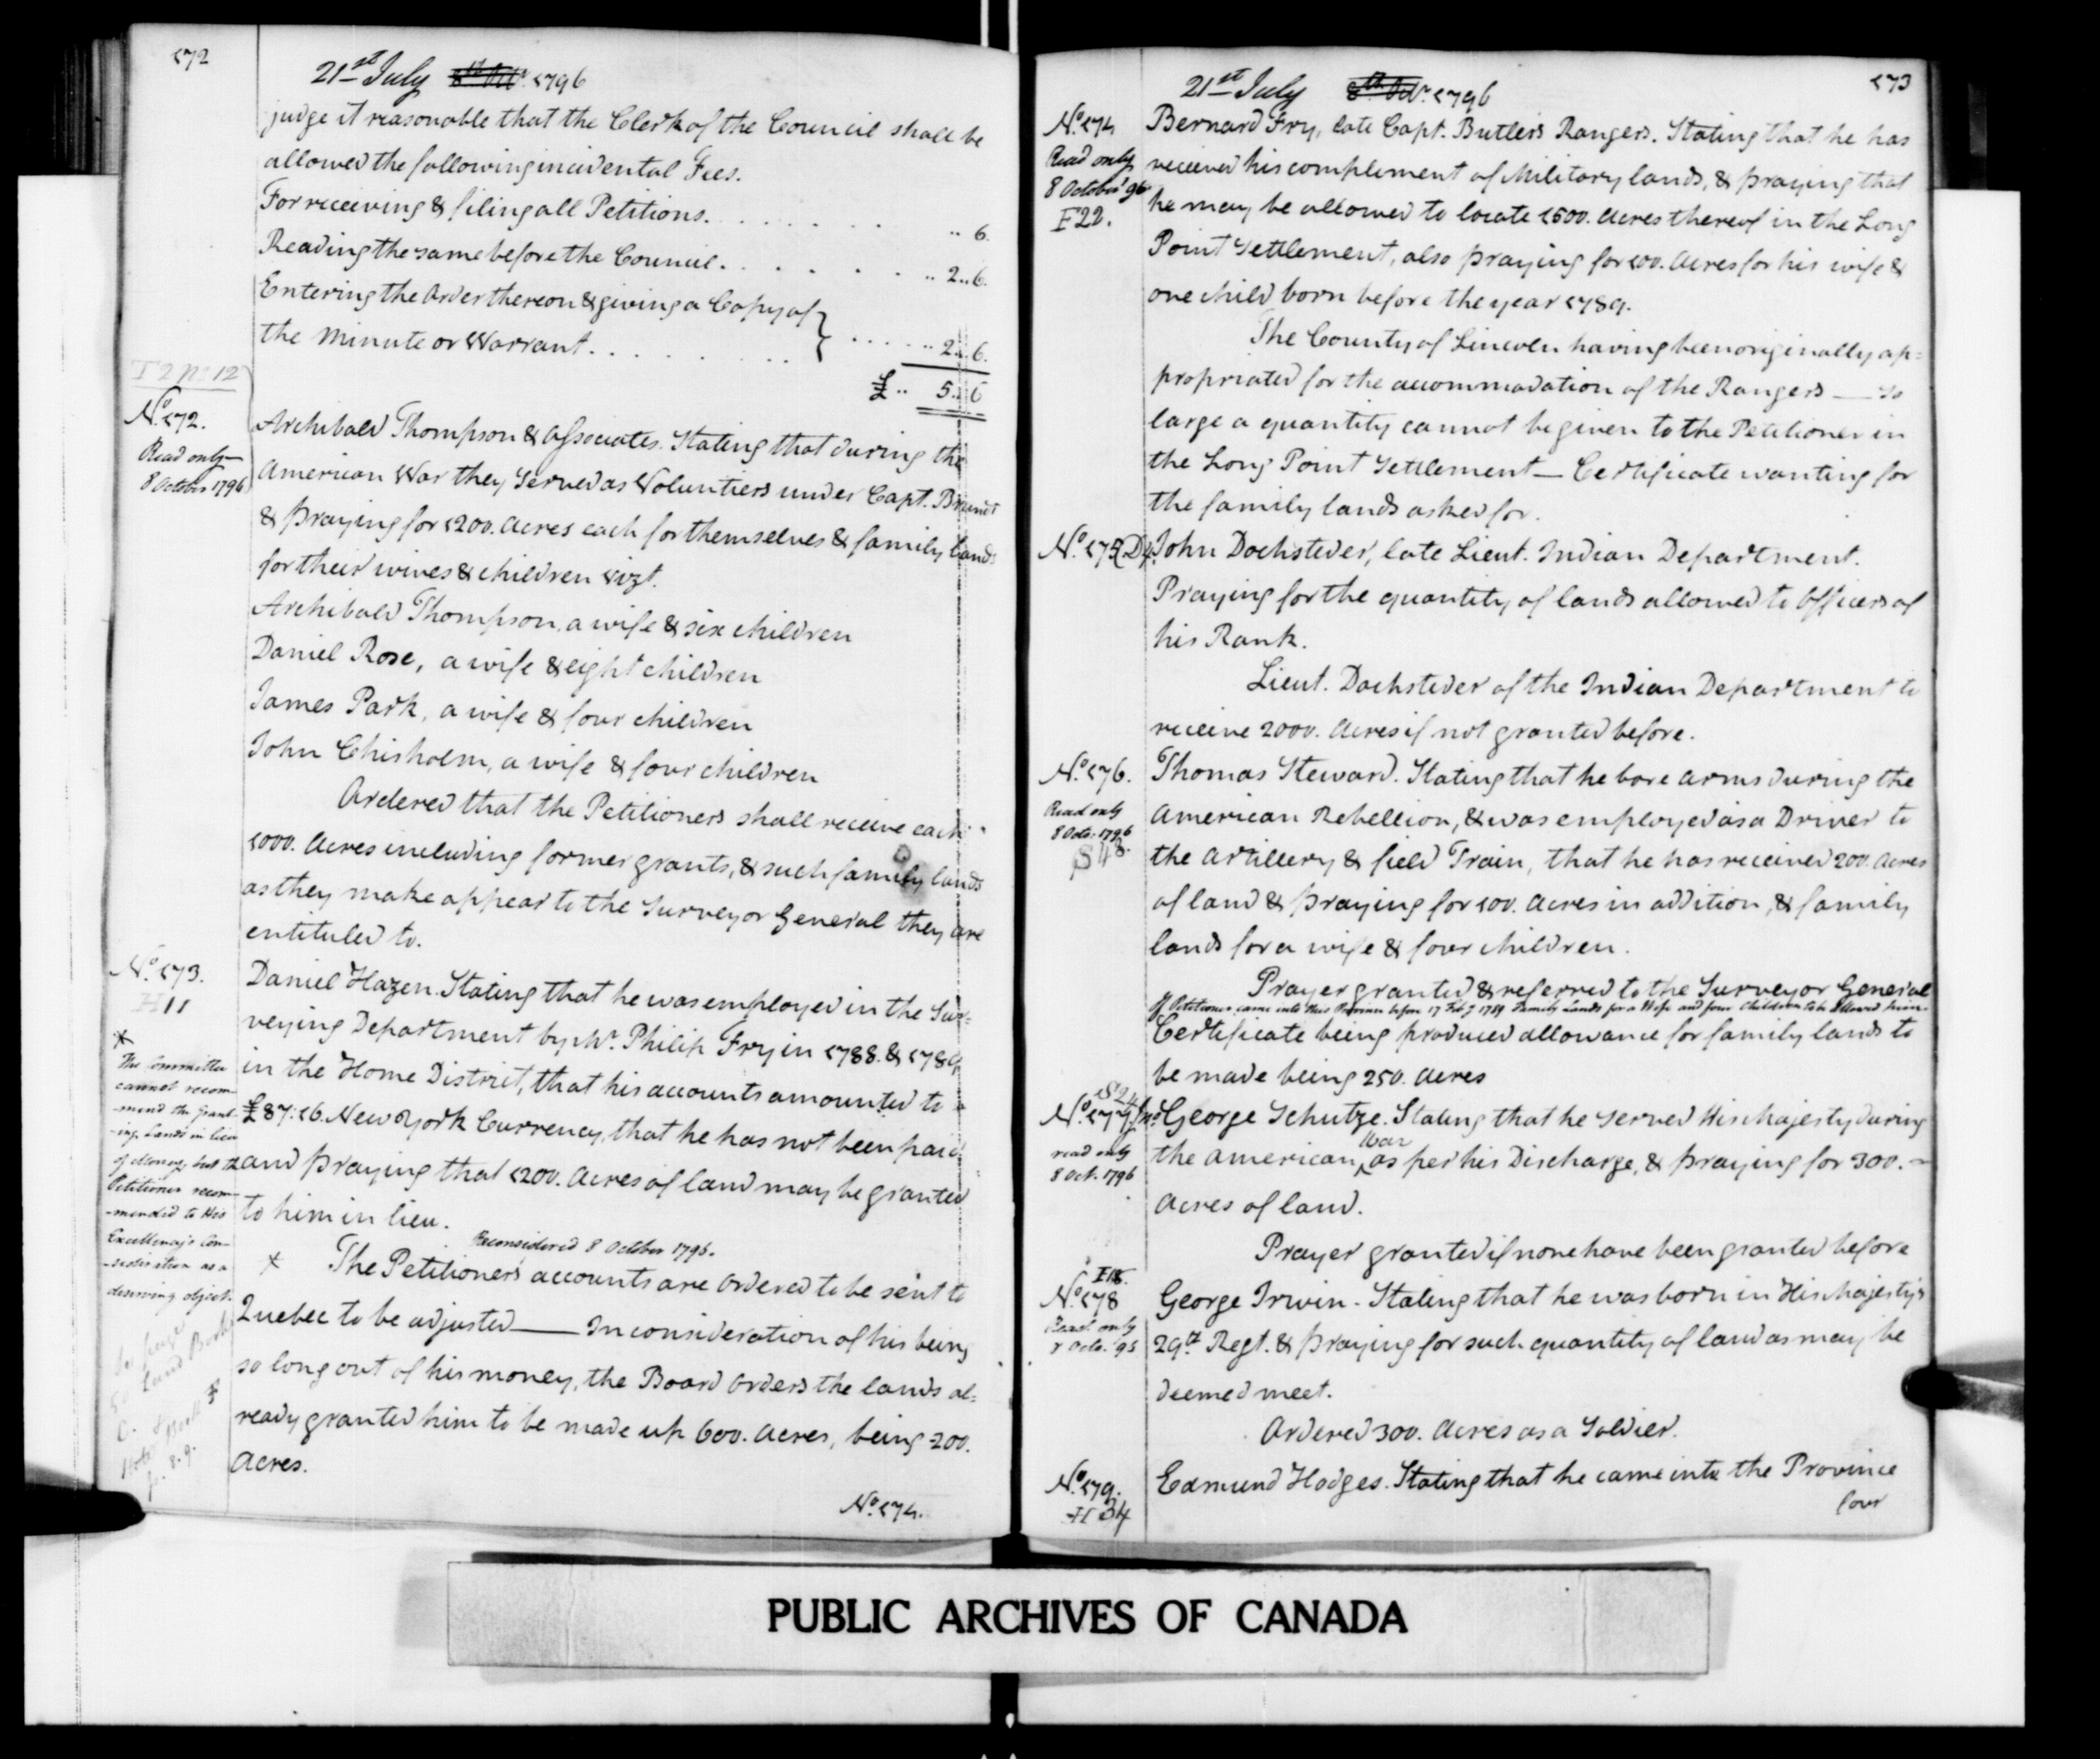 172
21st July 8th Octr. 1796
judge it reasonable that the Clerk of the Council shall be
allowed the following incidental Fees.
For receiving & filing all Petitions. . . . . . . .. 6.
Reading the same before the Council. . . . . . . .. 2.. 6.
Entering the Order thereon & giving a Copy of }
the Minute or Warrant. . . . . . . . . . . .. 2.. 6.
£.. 5.. 6
T 2 No 12
No. 172.
Read only
8 October 1796
Archibald Thompson & Associates. Stating that during the
American War they Served as Voluntiers under Capt. Brandt
& praying for 1200. Acres each for themselves & family lands
for their wives & children vizt.
Archibald Thompson, a wife & six children
Daniel Rose, a wife & eight children
James Park, a wife & four children
John Chisholm, a wife & four children
Ordered that the Petitioners shall receive each
1000. Acres including former grants, & such family lands
as they make appear to the Surveyor General they are
entituled to.
No. 173.
H11
Daniel Hazen. Stating that he was employed in the Sur=
veying Department by Mr. Philip Fry in 1788. & 1789.
in the Home District, that his accounts amounted to
£87:16. New York Currency, that he has not been paid
and praying that 1200. Acres of land may be granted
to him in lieu.
Reconsidered 8 October 1796.
x The Petitioner's accounts are ordered to be sent to
Quebec to be adjusted — In consideration of his being
so long out of his money, the Board Orders the lands al=
ready granted him to be made up 600. Acres, being 200.
Acres.
x
The Committee
cannot recom
-mend the grant-
-ing Lands in lieu
of Money, but the
Petitioner recom-
-mended to His
Excellency's Con-
-sideration as a
deserving object.
Land Book
p. 8. 9.
No. 174.
173
21st July 8th Octr. 1796
No. 174
Read only
8 October 96
F22.
Bernard Fry, late Capt. Butler's Rangers. Stating that he has
received his complement of Military lands, & praying that
he may be allowed to locate 1500. Acres thereof in the Long
Point Settlement, also praying for 100. Acres for his wife &
one child born before the year 1789.
The County of Lincoln having been originally ap=
propriated for the accommodation of the Rangers — So
large a quantity cannot be given to the Petitioner in
the Long Point Settlement — Certificate wanting for
the family lands asked for.
No. 175 D4. John Dochsteder, late Lieut. Indian Department.
Praying for the quantity of lands allowed to Officers of
his Rank.
Lieut. Dochsteder of the Indian Department to
receive 2000. Acres if not granted before.
No. 176.
Read only
8 Octr. 1796
S 48.
Thomas Steward. Stating that he bore arms during the
American Rebellion, & was employed as a Driver to
the Artillery & field Train, that he has received 200. Acres
of land & praying for 100. Acres in addition, & family
lands for a wife & four children.
Prayer granted & referred to the Surveyor General
If Petitioner came into this Province before 17 Feby 1789 Family Lands for a Wife and four Children to be allowed him
Certificate being produced allowance for family lands to
be made being 250. Acres
No. 177
read only
8 Oct. 1796
George Schutze. Stating that he Served His Majesty during
the American War as per his Discharge, & praying for 300.
Acres of land.
Prayer granted if none have been granted before
No. 178
Read only
George Irwin - Stating that he was born in His Majesty's
29th Regt. & praying for such quantity of land as may be
deemed meet.
Ordered 300. Acres as a Soldier.
No. 179.
H 34
Edmund Hodges. Stating that he came into the Province
four
PUBLIC ARCHIVES OF CANADA